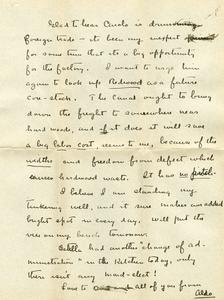 Glad to hear Carolo is drumming
foreign trade - its been my suspect
for some time that its a big opportunity
for the factory. I want to urge him
again to look up Redwood as a future
core-stock. The Canal ought to bring
down the freight to somewhere near
hard woods, and if it does it will save
a big labor cost, seems to me, because of the
widths and freedom from defect which
causes hardwood waste. It has no
I believe I am standing my
well, and it sure makes an added
bright spot in every day. Will put the
vise on my bench tomorrow.
had another "change of ad-
ministration" in the Kitchen today, only
there isn't any mad-elect!
Love to all of you from
Aldo